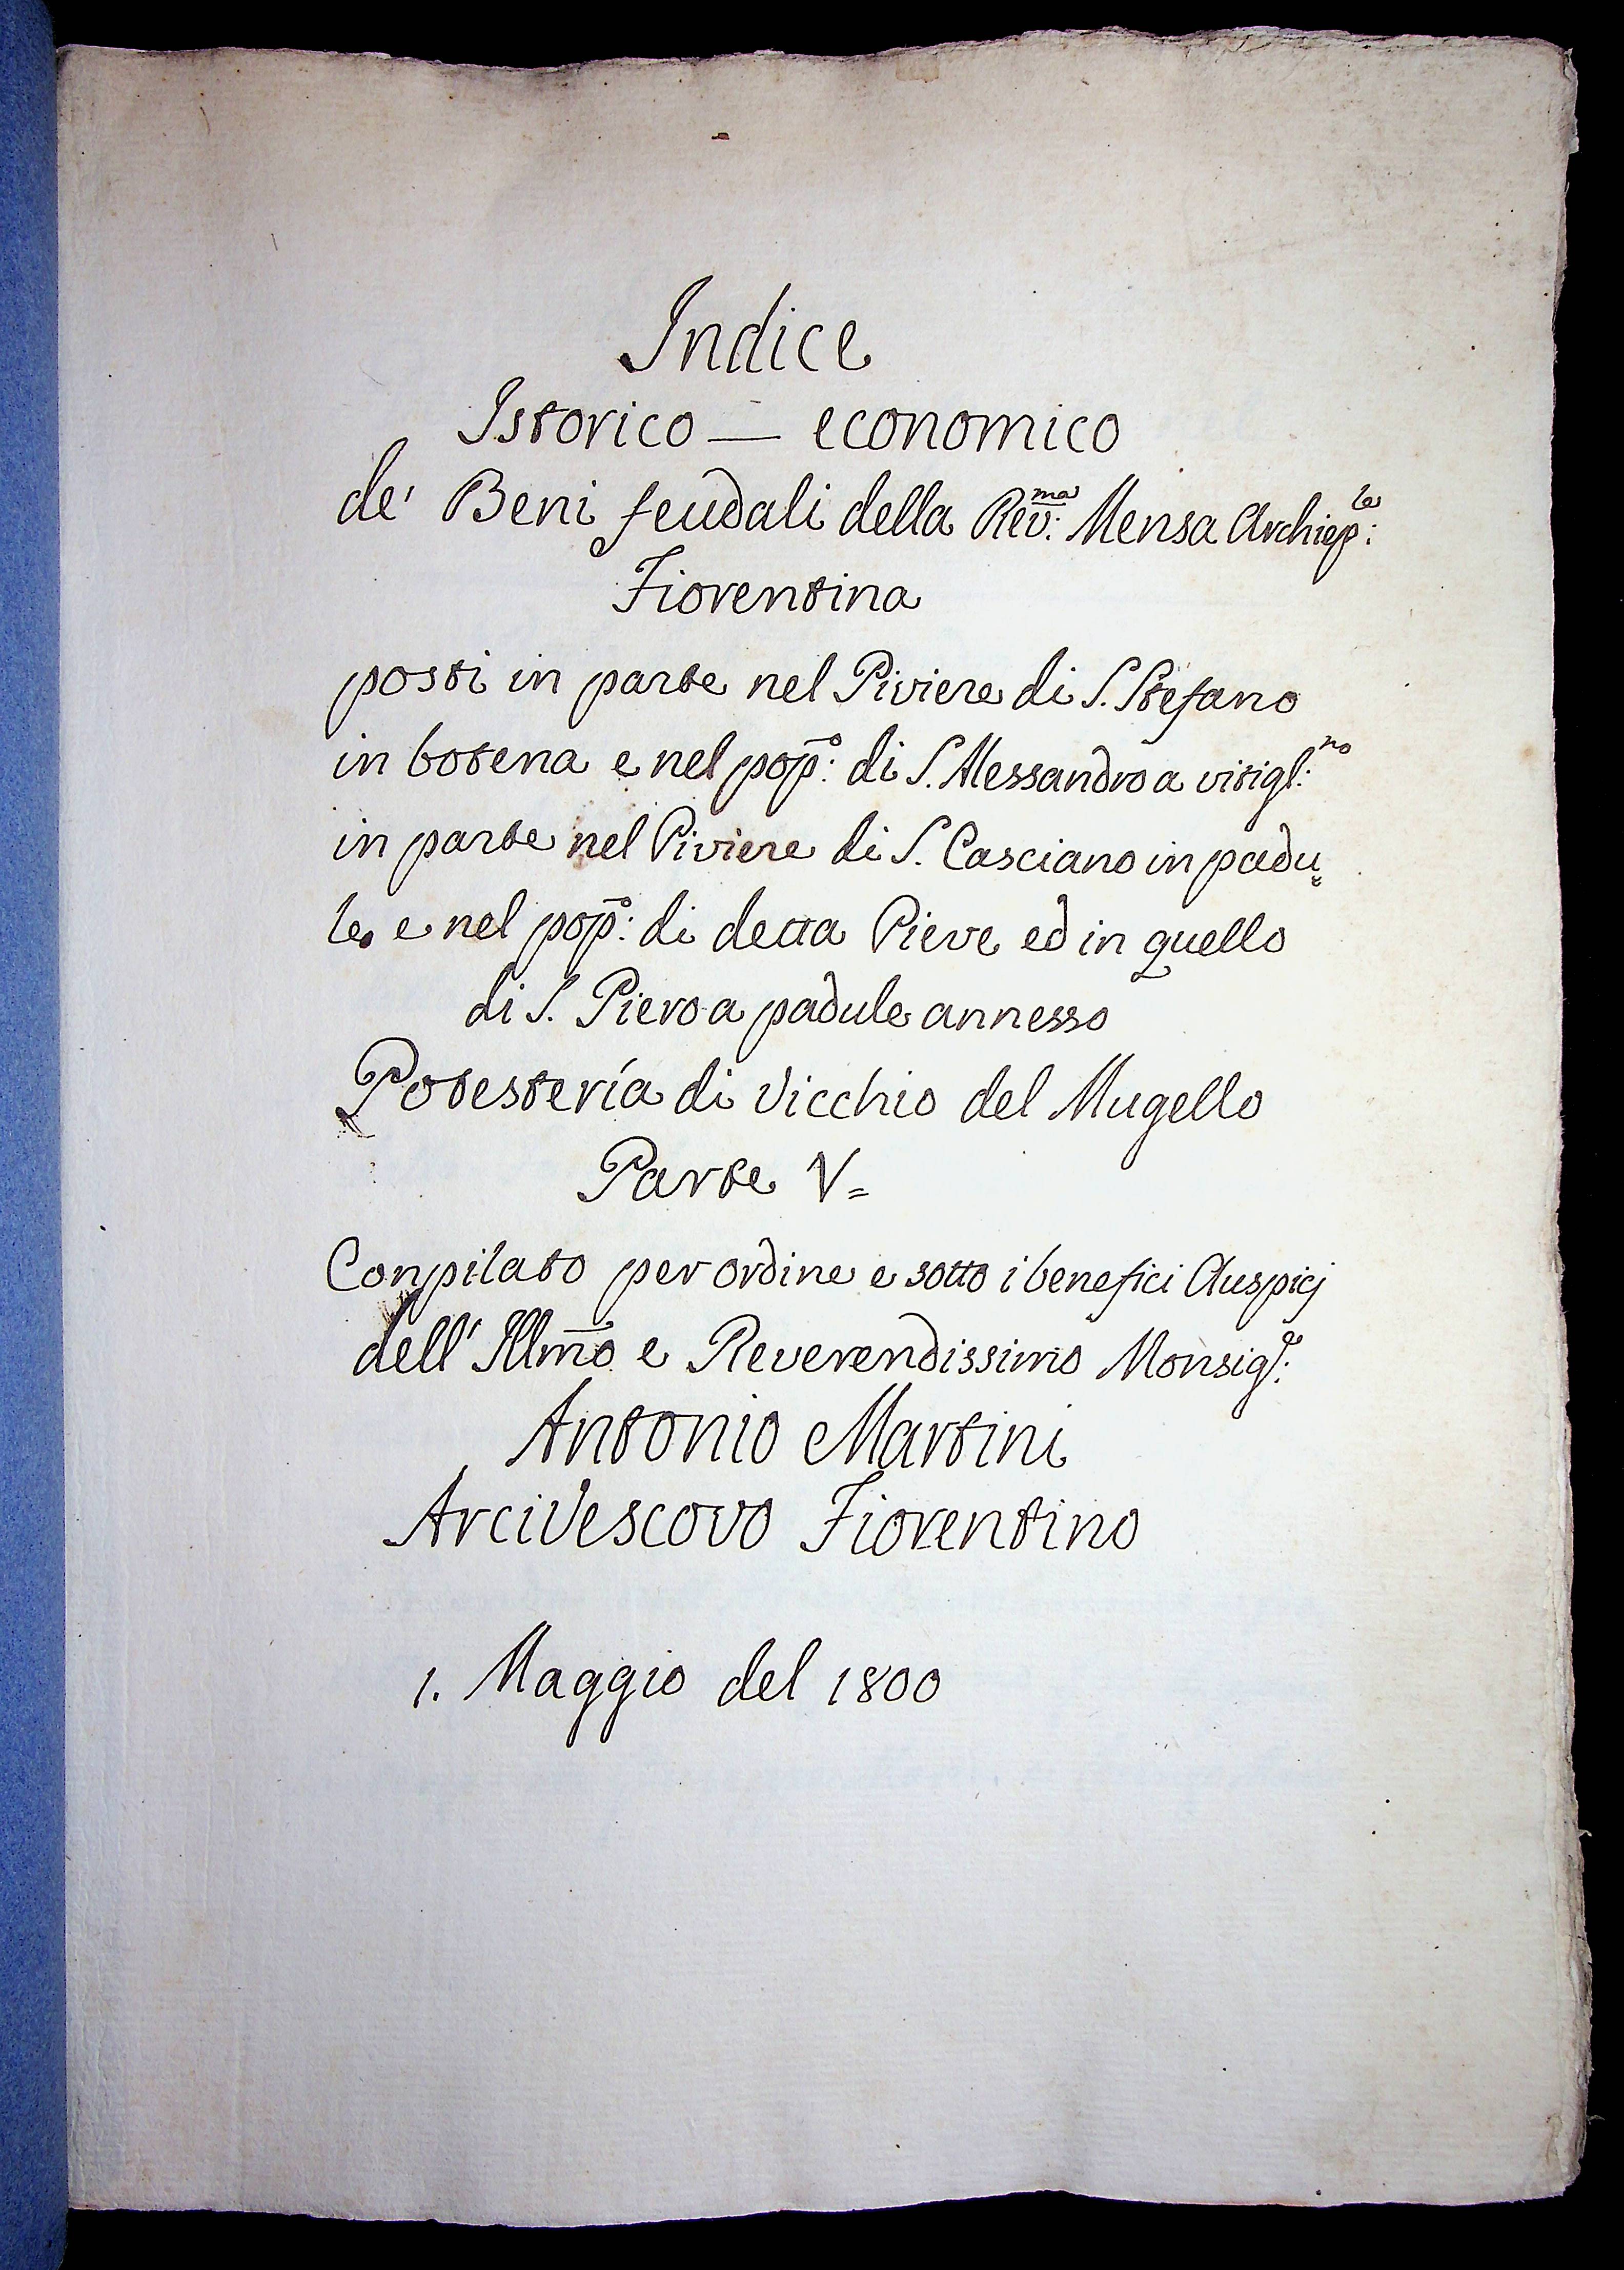 Indice
Istorico — economico
de' Beni feudali della Rev:ma Mensa Archiep:le
Fiorentina
posti in parte nel Piviere di S. Stefano
in botena e nel pop:o di S. Alessandro a vitigl:no
in parte nel Piviere di S. Casciano in padu=
le, e nel pop:o di detta Pieve ed in quello
di S. Piero a padule annesso
Potestería di Vicchio del Mugello
Parte V=
Conpilato per ordine e sotto i benefici Auspicj
dell' Illmo e Reverendissimo Monsig:re
Antonio Martini
Arcivescovo Fiorentino
1. Maggio del 1800